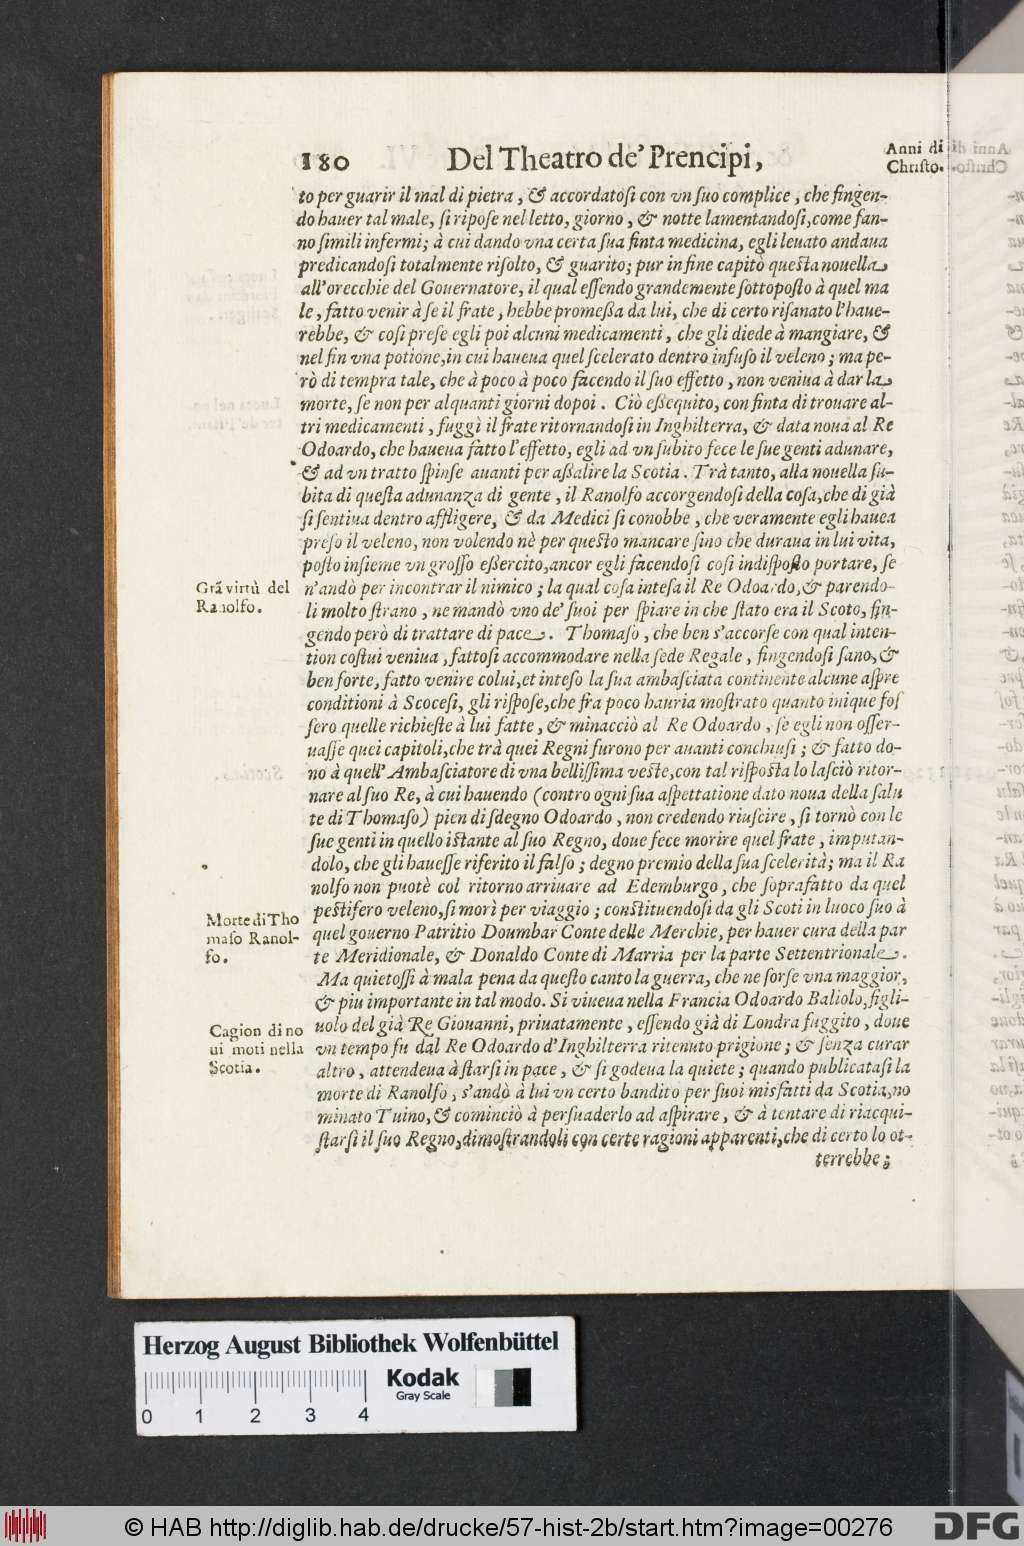 180 Del Theatro de' Prencipi,
Anni di
Christo.
to per guarir il mal di pietra, & accordatosi con vn suo complice, che fingen-
do hauer tal male, si ripose nel letto, giorno, & notte lamentandosi, come fan-
no simili infermi; à cui dando vna certa sua finta medicina, egli leuato andaua
predicandosi totalmente risolto, & guarito; pur in fine capitò questa nouella
all'orecchie del Gouernatore, il qual essendo grandemente sottoposto à quel ma
le, fatto venir à se il frate, hebbe promessa da lui, che di certo risanato l'haue-
rebbe, & cosi prese egli poi alcuni medicamenti, che gli diede à mangiare, &
nel fin vna potione, in cui haueua quel scelerato dentro infuso il veleno; ma pe-
rò di tempra tale, che à poco à poco facendo il suo effetto, non veniua à dar la
morte, se non per alquanti giorni dopoi. Ciò essequito, con finta di trouare al-
tri medicamenti, fuggì il frate ritornandosi in Inghilterra, & data noua al Re
Odoardo, che haueua fatto l'effetto, egli ad vn subito fece le sue genti adunare,
& ad vn tratto spinse auanti per assalire la Scotia. Trà tanto, alla nouella su-
bita di questa adunanza di gente, il Ranolfo accorgendosi della cosa, che di già
si sentiua dentro affligere, & da Medici si conobbe, che veramente egli hauea
preso il veleno, non volendo nè per questo mancare sino che duraua in lui vita,
posto insieme vn grosso essercito, ancor egli facendosi cosi indisposto portare, se
Grã virtù del
Ranolfo.
n'andò per incontrar il nimico; la qual cosa intesa il Re Odoardo, & parendo-
li molto strano, ne mandò vno de' suoi per spiare in che stato era il Scoto, fin-
gendo però di trattare di pace. Thomaso, che ben s'accorse con qual inten-
tion costui veniua, fattosi accommodare nella sede Regale, fingendosi sano, &
ben forte, fatto venire colui, et inteso la sua ambasciata continente alcune aspre
conditioni à Scocesi, gli rispose, che fra poco hauria mostrato quanto inique fos
sero quelle richieste à lui fatte, & minacciò al Re Odoardo, se egli non osser-
uasse quei capitoli, che trà quei Regni furono per auanti conchiusi; & fatto do-
no à quell' Ambasciatore di vna bellissima veste, con tal risposta lo lasciò ritor-
nare al suo Re, à cui hauendo (contro ogni sua aspettatione dato noua della salu
te di Thomaso) pien di sdegno Odoardo, non credendo riuscire, si tornò con le
sue genti in quello istante al suo Regno, doue fece morire quel frate, imputan-
dolo, che gli hauesse riferito il falso; degno premio della sua scelerità; ma il Ra
nolfo non puotè col ritorno arriuare ad Edemburgo, che soprafatto da quel
pestifero veleno, si morì per viaggio; constituendosi da gli Scoti in luoco suo à
Morte di Tho
maso Ranol-
fo.
quel gouerno Patritio Doumbar Conte delle Merchie, per hauer cura della par
te Meridionale, & Donaldo Conte di Marria per la parte Settentrionale.
Ma quietossi à mala pena da questo canto la guerra, che ne sorse vna maggior,
& piu importante in tal modo. Si viueua nella Francia Odoardo Baliolo, figli-
Cagion di no
ui moti nella
Scotia.
uolo del già Re Giouanni, priuatamente, essendo già di Londra fuggito, doue
vn tempo fu dal Re Odoardo d'Inghilterra ritenuto prigione; & senza curar
altro, attendeua à starsi in pace, & si godeua la quiete; quando publicatasi la
morte di Ranolfo, s'andò à lui vn certo bandito per suoi misfatti da Scotia, no
minato Tuino, & cominciò à persuaderlo ad aspirare, & à tentare di riacqui-
starsi il suo Regno, dimostrandoli con certe ragioni apparenti, che di certo lo ot-
terrebbe;
Herzog August Bibliothek Wolfenbüttel
Kodak
Gray Scale
0 1 2 3 4
© HAB http://diglib.hab.de/drucke/57-hist-2b/start.htm?image=00276
DFG